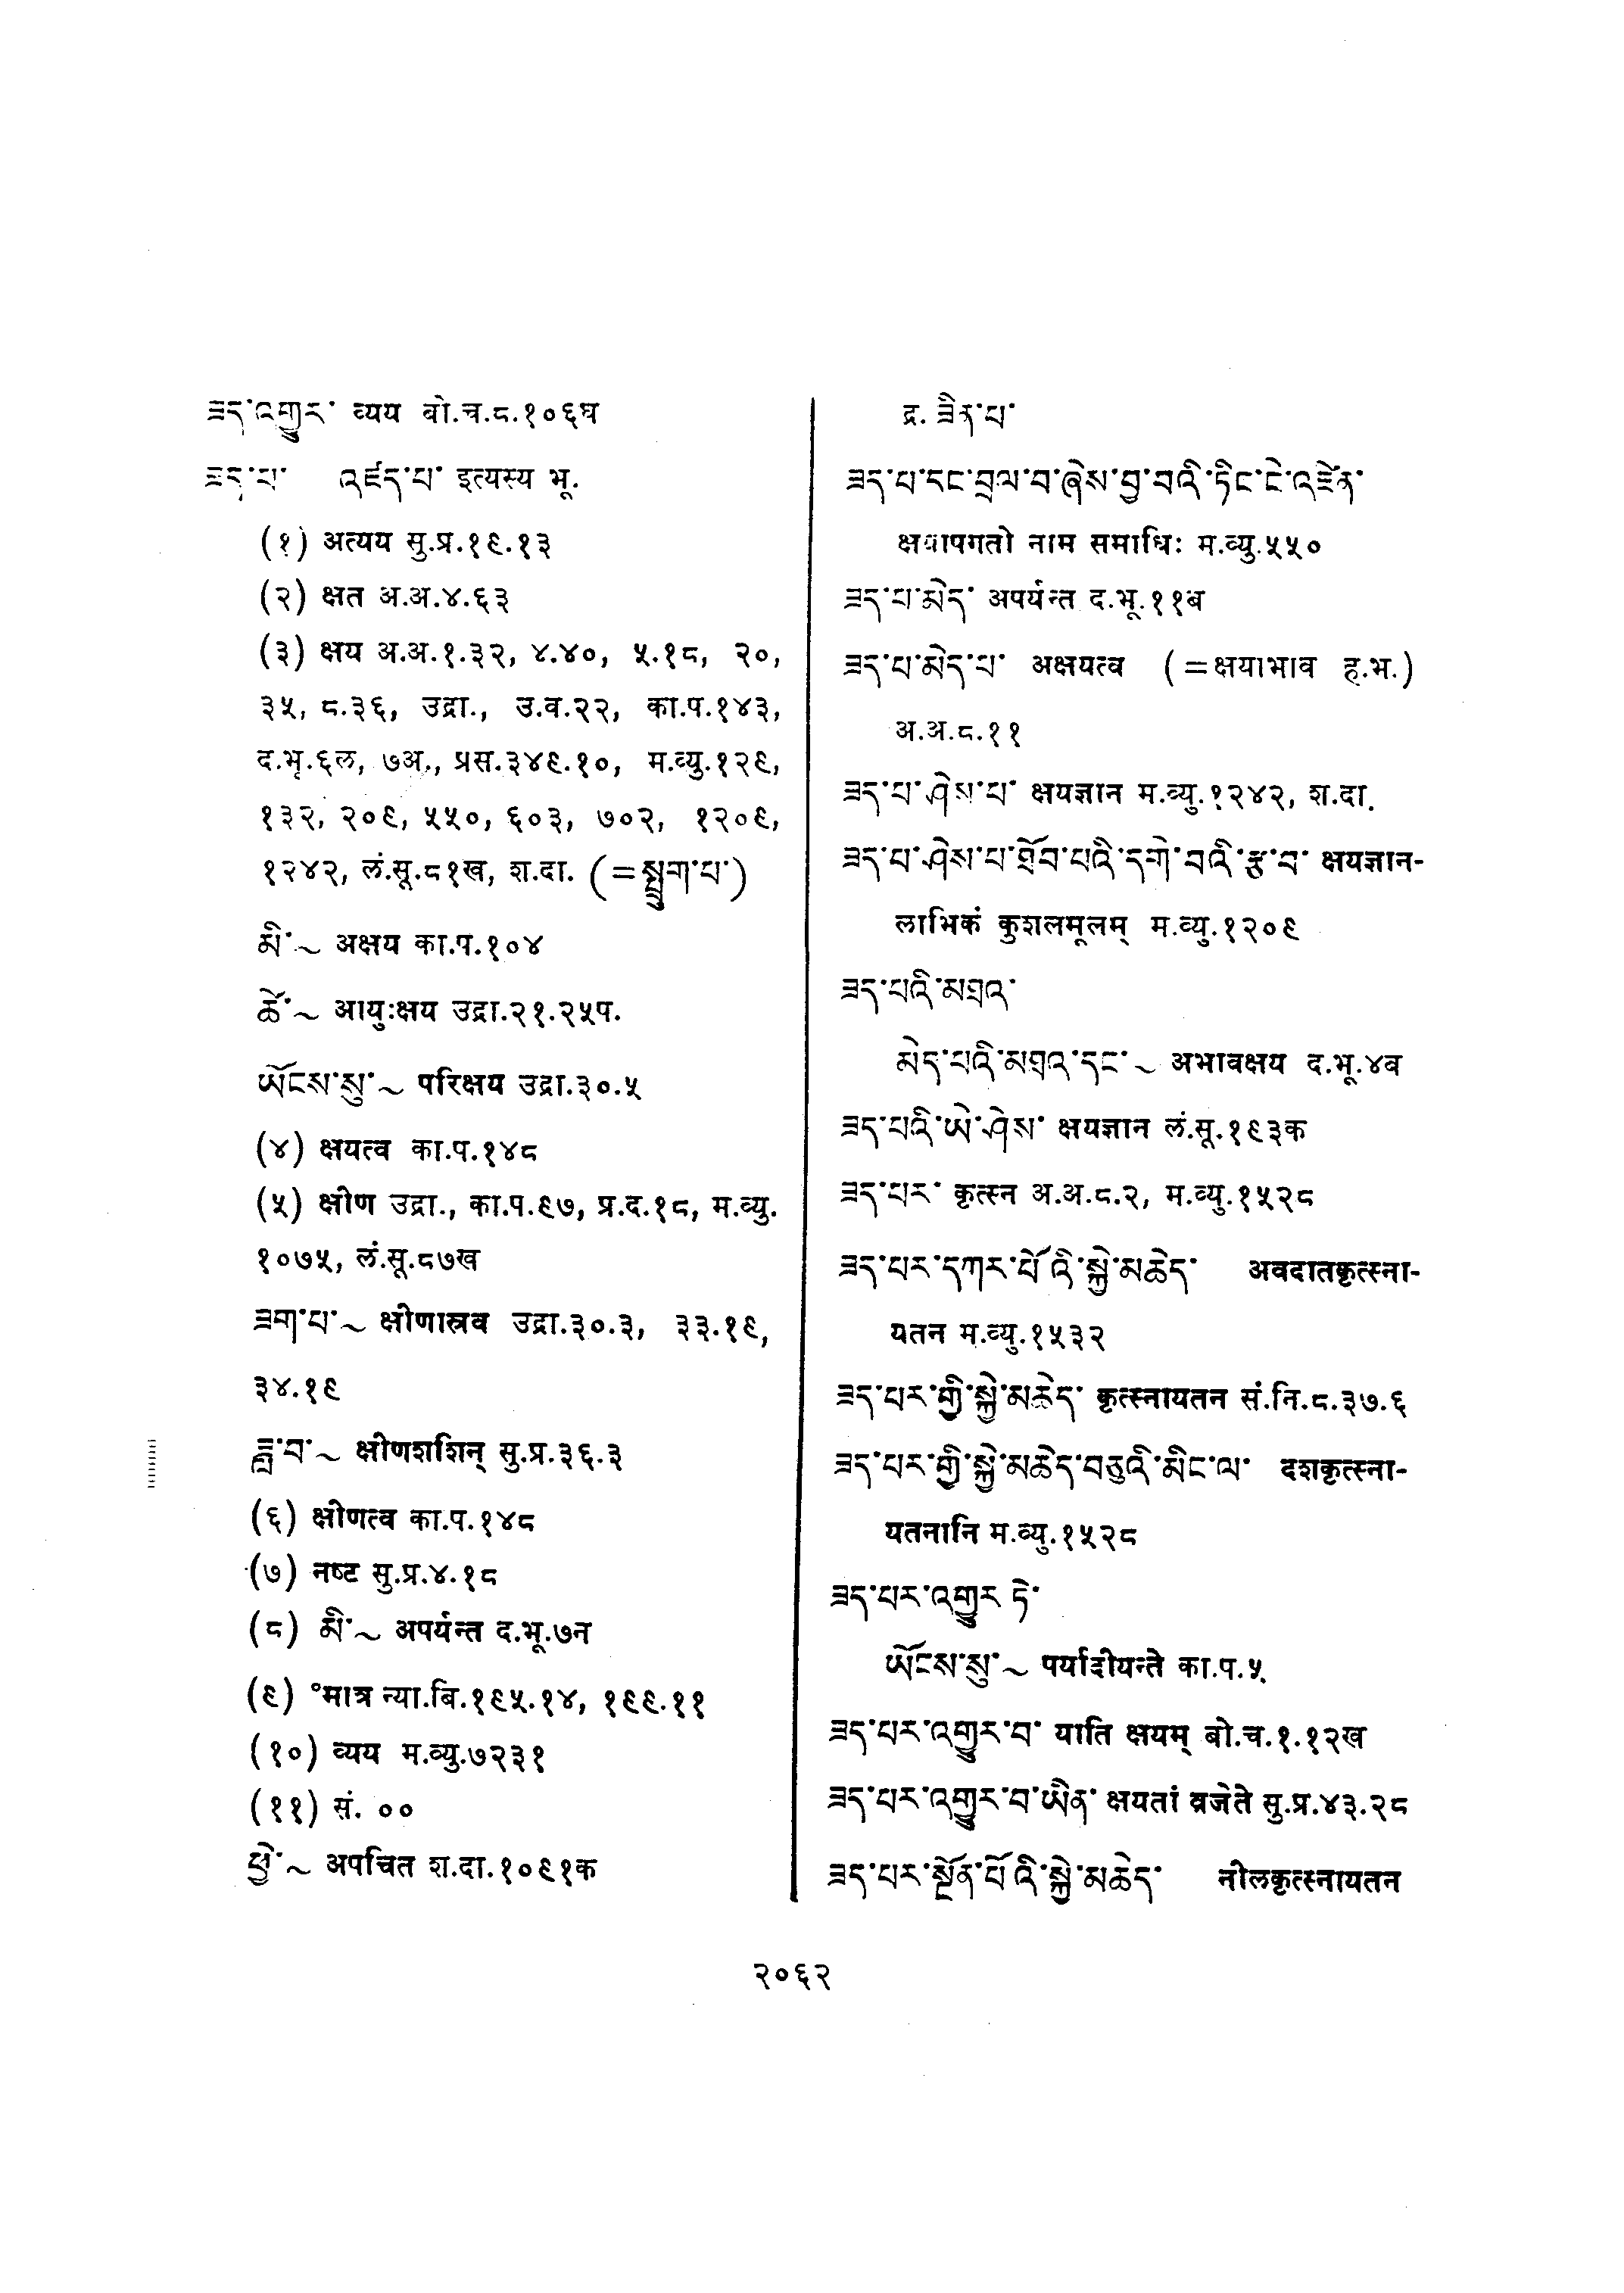 ཟད་འགྱུར་ व्यय बो.च.८.१०६घ
ཟད་པ་ འཛད་པ་ इत्यस्य भू.
(१) अत्यय सु.प्र.१९.१३
(२) क्षत अ.अ.४.६३
(३) क्षय अ.अ.१.३२, ४.४०, ५.१८, २०,
३५, ८.३६, उद्रा., उ.व.२२, का.प.१४३,
द.भू.६ल, ७अ., प्रस.३४९.१०, म.व्यु.१२९,
१३२, २०९, ५५०, ६०३, ७०२, १२०९,
१२४२, लं.सू.८१ख, श.दा. (=སྤྲུག་པ་)
མི་~ अक्षय का.प.१०४
ཚེ་~ आयुःक्षय उद्रा.२१.२५प.
ཡོངས་སུ་~ परिक्षय उद्रा.३०.५
(४) क्षयत्व का.प.१४८
(५) क्षीण उद्रा., का.प.९७, प्र.द.१८, म.व्यु.
१०७५, लं.सू.८७ख
ཟག་པ་~ क्षीणास्रव उद्रा.३०.३, ३३.१९,
३४.१९
ཟླ་བ་~ क्षीणशशिन् सु.प्र.३६.३
(६) क्षीणत्व का.प.१४८
(७) नष्ट सु.प्र.४.१८
(८) མི་~ अपर्यन्त द.भू.७न
(९) °मात्र न्या.बि.१९५.१४, १९९.११
(१०) व्यय म.व्यु.७२३१
(११) सं. ००
ཕྱེ་~ अपचित श.दा.१०९१क
द्र. ཟིན་པ་
ཟད་པ་དང་བྲལ་བ་ཞེས་བྱ་བའི་ཏིང་ངེ་འཛིན་
क्षयापगतो नाम समाधिः म.व्यु.५५०
ཟད་པ་མེད་ अपर्यन्त द.भू.११ब
ཟད་པ་མེད་པ་ अक्षयत्व (=क्षयाभाव ह.भ.)
अ.अ.८.११
ཟད་པ་ཤེས་པ་ क्षयज्ञान म.व्यु.१२४२, श.दा.
ཟད་པ་ཤེས་པ་ཐོབ་པའི་དགེ་བའི་རྩ་བ་ क्षयज्ञान-
लाभिकं कुशलमूलम् म.व्यु.१२०९
ཟད་པའི་མཐའ་
མེད་པའི་མཐའ་དང་~ अभावक्षय द.भू.४ब
ཟད་པའི་ཡེ་ཤེས་ क्षयज्ञान लं.सू.१९३क
ཟད་པར་ कृत्स्न अ.अ.८.२, म.व्यु.१५२८
ཟད་པར་དཀར་པོའི་སྐྱེ་མཆེད་ अवदातकृत्स्ना-
यतन म.व्यु.१५३२
ཟད་པར་གྱི་སྐྱེ་མཆེད་ कृत्स्नायतन सं.नि.८.३७.६
ཟད་པར་གྱི་སྐྱེ་མཆེད་བཅུའི་མིང་ལ་ दशकृत्स्ना-
यतनानि म.व्यु.१५२८
ཟད་པར་འགྱུར་ཏེ་
ཡོངས་སུ་~ पर्यादीयन्ते का.प.५
ཟད་པར་འགྱུར་བ་ याति क्षयम् बो.च.१.१२ख
ཟད་པར་འགྱུར་བ་ཡིན་ क्षयतां व्रजेते सु.प्र.४३.२८
ཟད་པར་སྔོན་པོའི་སྐྱེ་མཆེད་ नीलकृत्स्नायतन
२०६२